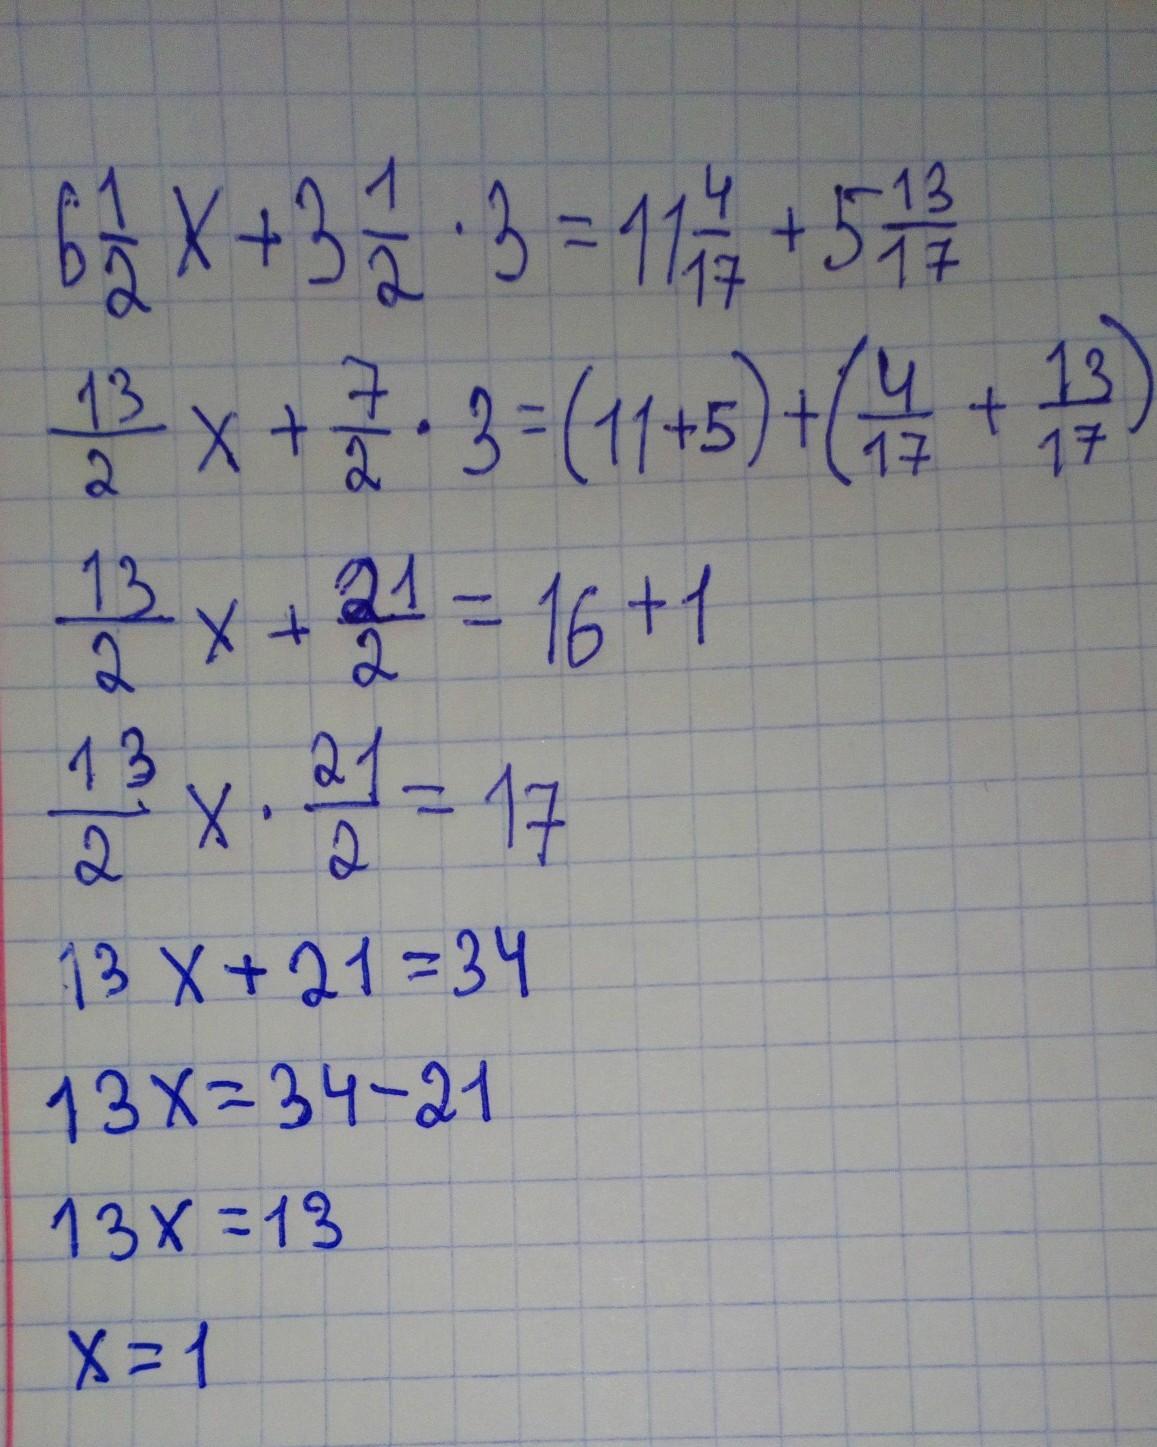 6 1/2 x + 3 1/2 · 3 = 11 4/17 + 5 13/17
13/2 x + 7/2 · 3 = (11+5) + (4/17 + 13/17)
13/2 x + 21/2 = 16 + 1
13/2 x · 21/2 = 17
13 x + 21 = 34
13x = 34 - 21
13x = 13
x = 1